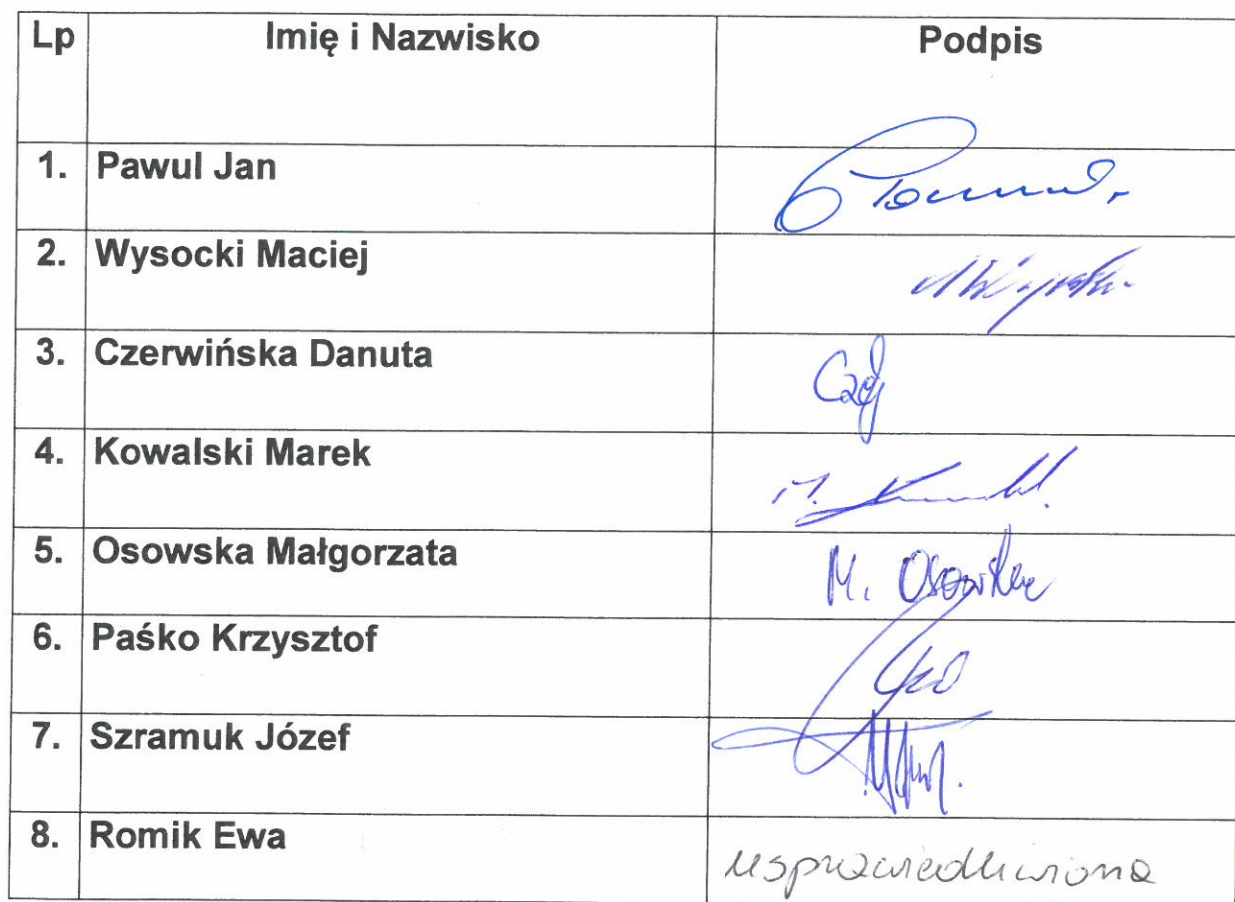 Lp Imię i Nazwisko Podpis
1. Pawul Jan
2. Wysocki Maciej
3. Czerwińska Danuta
4. Kowalski Marek
5. Osowska Małgorzata M. Osowska
6. Paśko Krzysztof
7. Szramuk Józef
8. Romik Ewa usprawiedliwiona